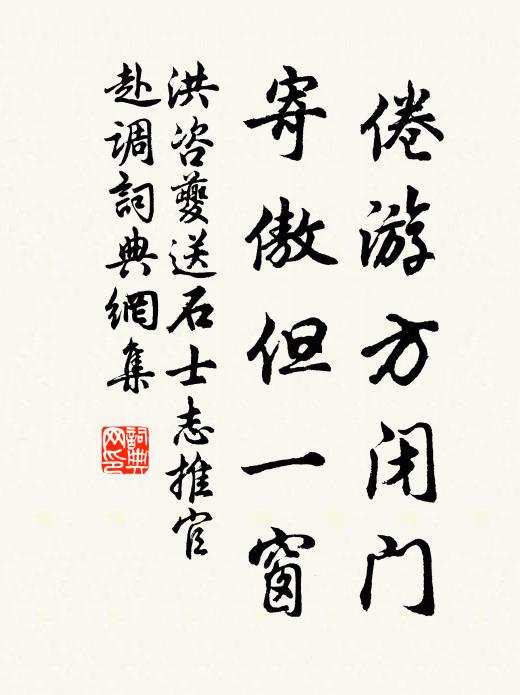 倦游方闭门
寄傲但一窗
洪咨夔送石士志推官
赴调詞典網集
詞典网印